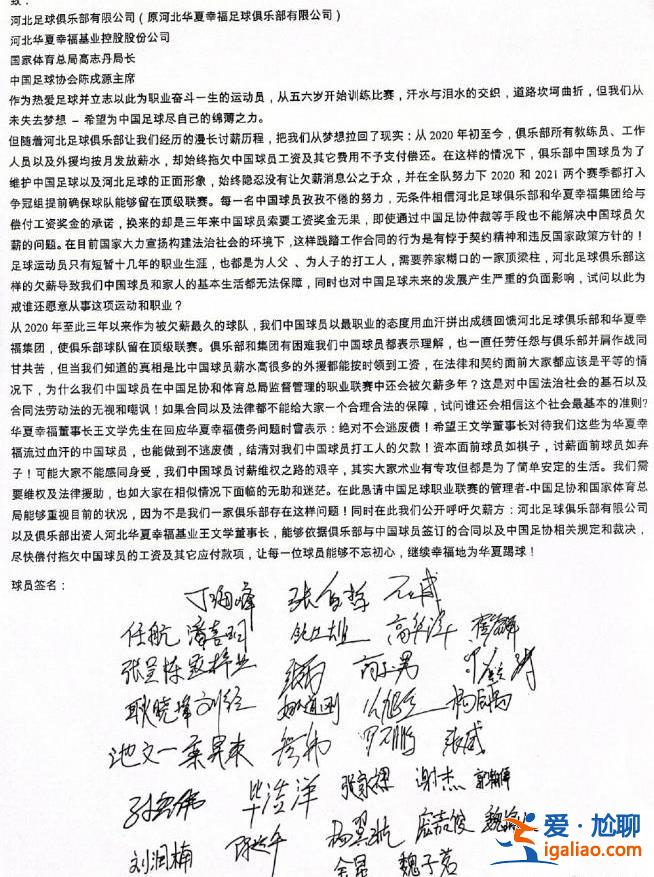 致：
河北足球俱乐部有限公司（原河北华夏幸福足球俱乐部有限公司）
河北华夏幸福基业控股股份公司
国家体育总局高志丹局长
中国足球协会陈戌源主席
作为热爱足球并立志以此为职业奋斗一生的运动员，从五六岁开始训练比赛，汗水与泪水的交织，道路坎坷曲折，但我们从
未失去梦想 – 希望为中国足球尽自己的绵薄之力。
但随着河北足球俱乐部让我们经历的漫长讨薪历程，把我们从梦想拉回了现实：从 2020 年初至今，俱乐部所有教练员、工作
人员以及外援均按月发放薪水，却始终拖欠中国球员工资及其它费用不予支付偿还。在这样的情况下，俱乐部中国球员为了
维护中国足球以及河北足球的正面形象，始终隐忍没有让欠薪消息公之于众，并在全队努力下 2020 和 2021 两个赛季都打入
争冠组提前确保球队能够留在顶级联赛。每一名中国球员孜孜不倦的努力，无条件相信河北足球俱乐部和华夏幸福集团给与
偿付工资奖金的承诺，换来的却是三年来中国球员索要工资奖金无果，即使通过中国足协仲裁等手段也不能解决中国球员欠
薪的问题。在目前国家大力宣扬构建法治社会的环境下，这样践踏工作合同的行为是有悖于契约精神和违反国家政策方针的！
足球运动员只有短暂十几年的职业生涯，也都是为人父 、为人子的打工人，需要养家糊口的一家顶梁柱，河北足球俱乐部这
样的欠薪导致我们中国球员和家人的基本生活都无法保障，同时也对中国足球未来的发展产生严重的负面影响，试问以此为
戒谁还愿意从事这项运动和职业？
从 2020 年至此三年以来作为被欠薪最久的球队，我们中国球员以最职业的态度用血汗拼出成绩回馈河北足球俱乐部和华夏幸
福集团，使俱乐部球队留在顶级联赛。俱乐部和集团有困难我们中国球员都表示理解，也一直任劳任怨与俱乐部并肩作战同
甘共苦，但当我们知道的真相是比中国球员薪水高很多的外援都能按时领到工资，在法律和契约面前大家都应该是平等的情
况下，为什么我们中国球员在中国足协和体育总局监督管理的职业联赛中还会被欠薪多年？这是对中国法治社会的基石以及
合同法劳动法的无视和嘲讽！如果合同以及法律都不能给大家一个合理合法的保障，试问谁还会相信这个社会最基本的准则?
华夏幸福董事长王文学先生在回应华夏幸福债务问题时曾表示：绝对不会逃废债！希望王文学董事长对待我们这些为华夏幸
福流过血汗的中国球员，也能做到不逃废债，结清对我们中国球员打工人的欠款！资本面前球员如棋子，讨薪面前球员如弃
子！可能大家不能感同身受，我们中国球员讨薪维权之路的艰辛，其实大家术业有专攻但都是为了简单安定的生活。我们需
要维权及法律援助，也如大家在相似情况下面临的无助和迷茫。在此恳请中国足球职业联赛的管理者-中国足协和国家体育总
局能够重视目前的状况，因为不是我们一家俱乐部存在这样问题！同时在此我们公开呼吁欠薪方：河北足球俱乐部有限公司
以及俱乐部出资人河北华夏幸福基业王文学董事长，能够依据俱乐部与中国球员签订的合同以及中国足协相关规定和裁决，
尽快偿付拖欠中国球员的工资及其它应付款项，让每一位球员能够不忘初心，继续幸福地为华夏踢球！
球员签名：
丁海峰
任航 潘喜明 高华泽
张呈栋
耿晓峰 刘径
池文一 张威
毕浩洋 张家祺 谢杰
刘润楠 魏子茗
爱·尬聊
igaliao.com